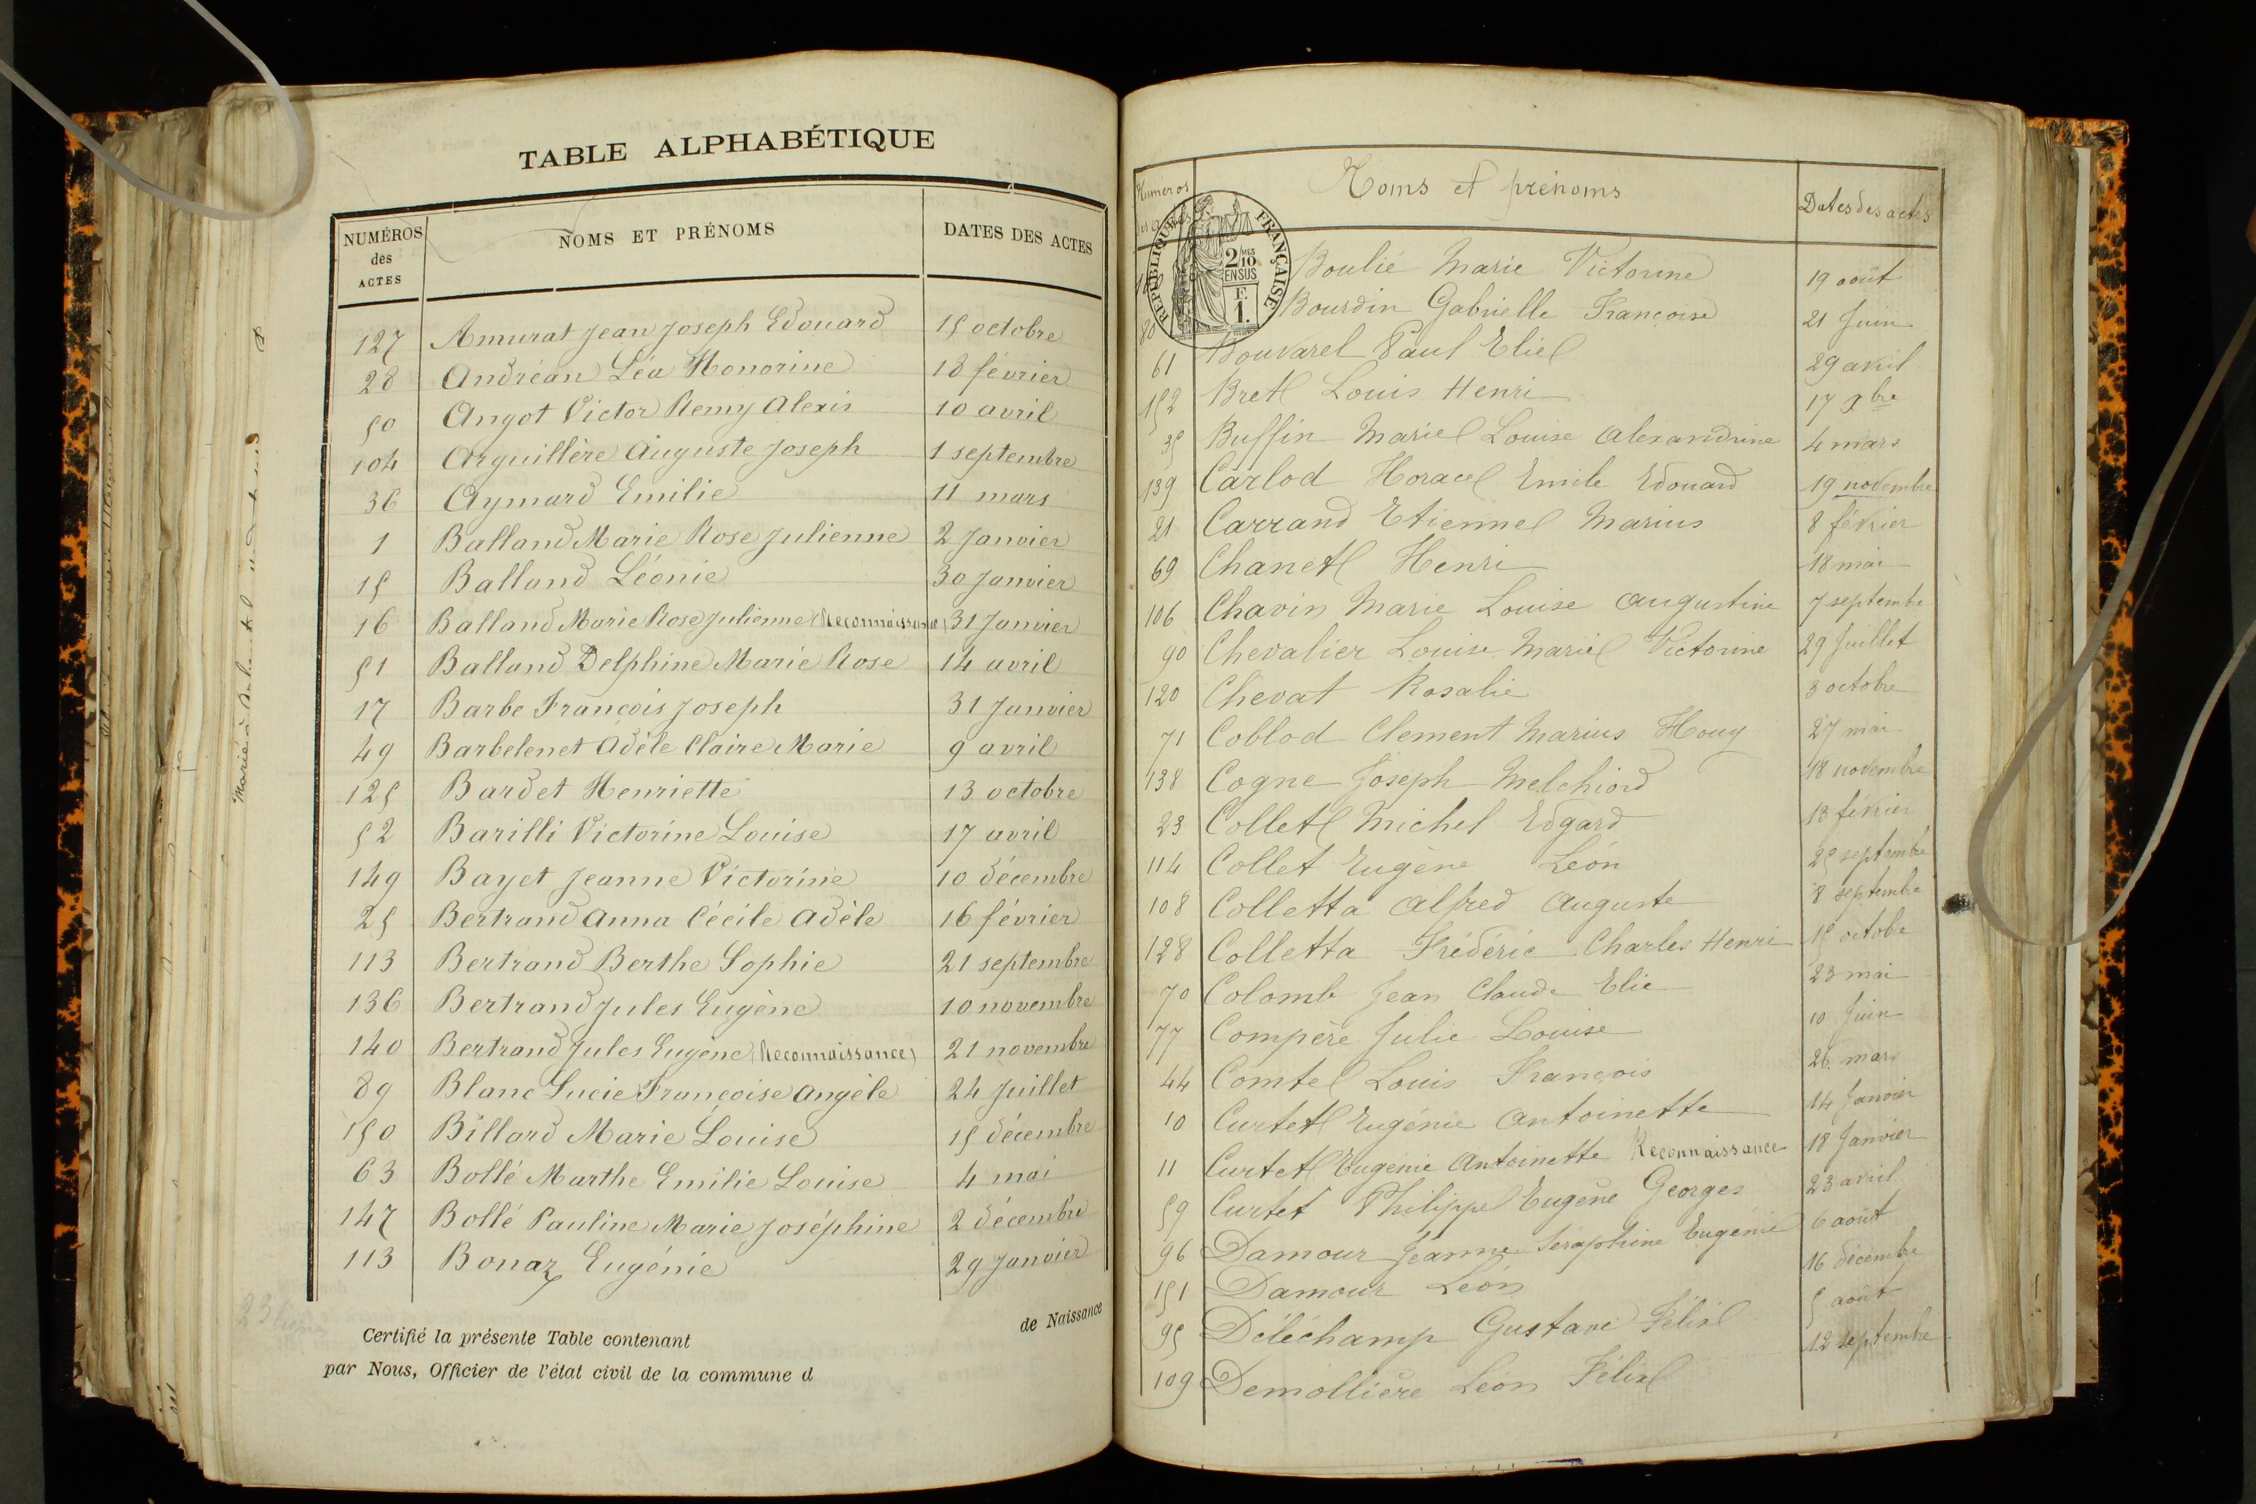 TABLE ALPHABÉTIQUE
NUMÉROS des ACTES NOMS ET PRÉNOMS DATES DES ACTES
127 Amurat Jean Joseph Edouard 15 octobre
28 Andréan Léa Honorine 18 février
50 Angot Victor Remy Alexis 10 avril
104 Arguillère Auguste Joseph 1 septembre
36 Aymard Emilie 11 mars
1 Balland Marie Rose Julienne 2 Janvier
15 Balland Léonie 30 Janvier
16 Balland Marie Rose Julienne (Reconnaissance) 31 Janvier
51 Balland Delphine Marie Rose 14 avril
17 Barbe François Joseph 31 Janvier
49 Barbelenet Adèle Claire Marie 9 avril
125 Bardet Henriette 13 octobre
52 Barilli Victorine Louise 17 avril
149 Bayet Jeanne Victorine 10 décembre
25 Bertrand Anna Cécile Adèle 16 février
113 Bertrand Berthe Sophie 21 septembre
136 Bertrand Jules Eugène 10 novembre
140 Bertrand Jules Eugène (Reconnaissance) 21 novembre
89 Blanc Lucie Françoise Angèle 24 Juillet
150 Billard Marie Louise 15 décembre
63 Bollé Marthe Emilie Louise 4 mai
147 Bollé Pauline Marie Joséphine 2 décembre
113 Bonaz Eugénie 29 Janvier
de Naissance
Certifié la présente Table contenant
par Nous, Officier de l'état civil de la commune d
Marié à
Numéros Noms et prénoms Dates des actes
RÉPUBLIQUE FRANÇAISE
2 10 EN SUS
F. 1.
Boulié Marie Victorine 19 août
80 Bourdin Gabrielle Françoise 21 Juin
61 Bouvarel Paul Elie 29 avril
152 Bret Louis Henri 17 Xbre
35 Buffin Marie Louise Alexandrine 4 mars
139 Carlod Horace Emile Edouard 19 novembre
21 Carrand Etienne Marius 8 février
69 Chanet Henri 18 mai
106 Chavin Marie Louise Augustine 7 septembre
90 Chevalier Louise Marie Victorine 29 Juillet
120 Chevat Rosalie 3 octobre
71 Coblod Clement Marius Houy 27 mai
138 Cogne Joseph Melchiord 18 novembre
23 Collet Michel Edgard 13 février
114 Collet Eugène Léon 25 septembre
108 Colletta Alfred Auguste 8 septembre
128 Colletta Frédéric Charles Henri 15 octobre
70 Colomb Jean Claude Elie 23 mai
77 Compère Julie Louise 10 Juin
44 Comte Louis François 26 mars
10 Curtet Eugénie Antoinette 14 Janvier
11 Curtet Eugénie Antoinette Reconnaissance 18 Janvier
59 Curtet Philippe Eugène Georges 23 avril
96 Damour Jeanne Séraphine Eugénie 6 août
151 Damour Léon 16 décembre
95 Déléchamp Gustave Félix 5 août
109 Demollière Léon Félix 12 septembre